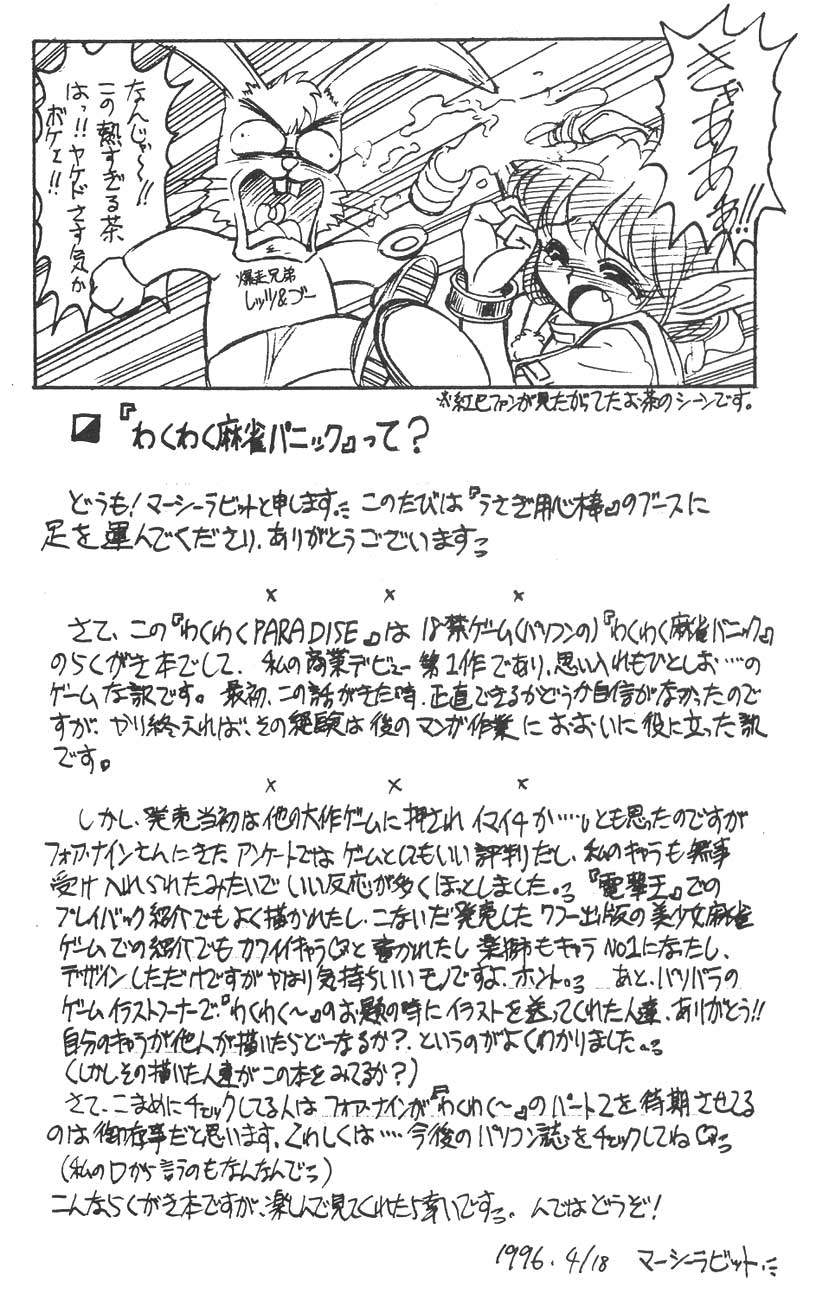 きゃあああぁ!!
なんじゃ〜!!
この熱すぎる茶
はっ!!ヤケドさす気か
ボケェ!!
爆走兄弟
レッツ&ゴー
※紅巳ファンが見たがってたお茶のシーンです。
『わくわく麻雀パニック』って?
どうも!マーシーラビットと申します。このたびは『うさぎ用心棒』のブースに
足を運んでくださり、ありがとうございます
× × ×
さて、この『わくわくPARADISE』は18禁ゲーム(パソコンの)『わくわく麻雀パニック』
のらくがき本でして、私の商業デビュー第1作であり、思い入れもひとしお…の
ゲームな訳です。最初、この話がきた時、正直できるかどうか自信がなかったので
すが、やり終えれば、その経験は後のマンガ作業におおいに役に立った訳
です。
× × ×
しかし、発売当初は他の大作ゲームに押されイマイチか……とも思ったのですが
フォア・ナインさんにきたアンケートではゲームとしてもいい評判だし、私のキャラも無事
受け入れられたみたいでいい反応が多くほっとしました。『電撃王』での
プレイバック紹介でもよく描かれたし、こないだ発売したワニー出版の美少女麻雀
ゲームでの紹介でもカワイイキャラと書かれたし 薬師もキャラNO1になったし、
デザインしただけですがやはり気持ちいいモノですよ、ホント。あと、パソパラの
ゲームイラストコーナーで、『わくわく〜』のお題の時にイラストを送ってくれた人達、ありがとう!!
自分のキャラが他人が描いたらどーなるか?、というのがよくわかりました
(しかしその描いた人達がこの本をみてるか?)
さて、こまめにチェックしてる人はフォア・ナインが『わくわく〜』のパート2を待期させてる
のは御存事だと思います。くわしくは…今後のパソコン誌をチェックしてね
(私の口から言うのもなんなんで)
こんならくがき本ですが、楽しんで見てくれたら幸いです。んではどうぞ!
1996. 4/18 マーシーラビット